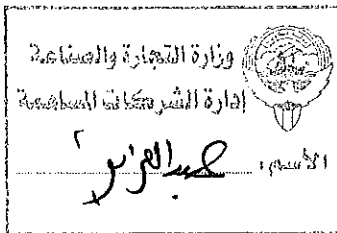 وزارة التجارة والصناعة
إدارة الشركات المساهمة
الاسم: